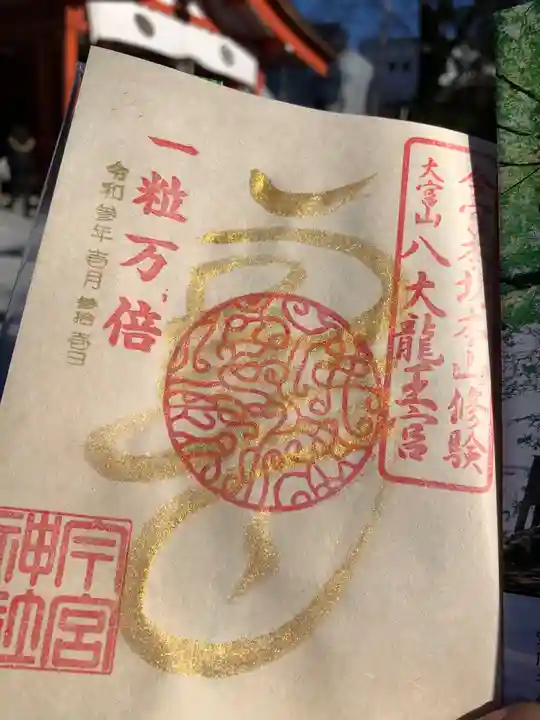 本山修験
大宮山 八大龍王宮
一粒万倍
令和参年壱月参拾壱日
今宮
神社